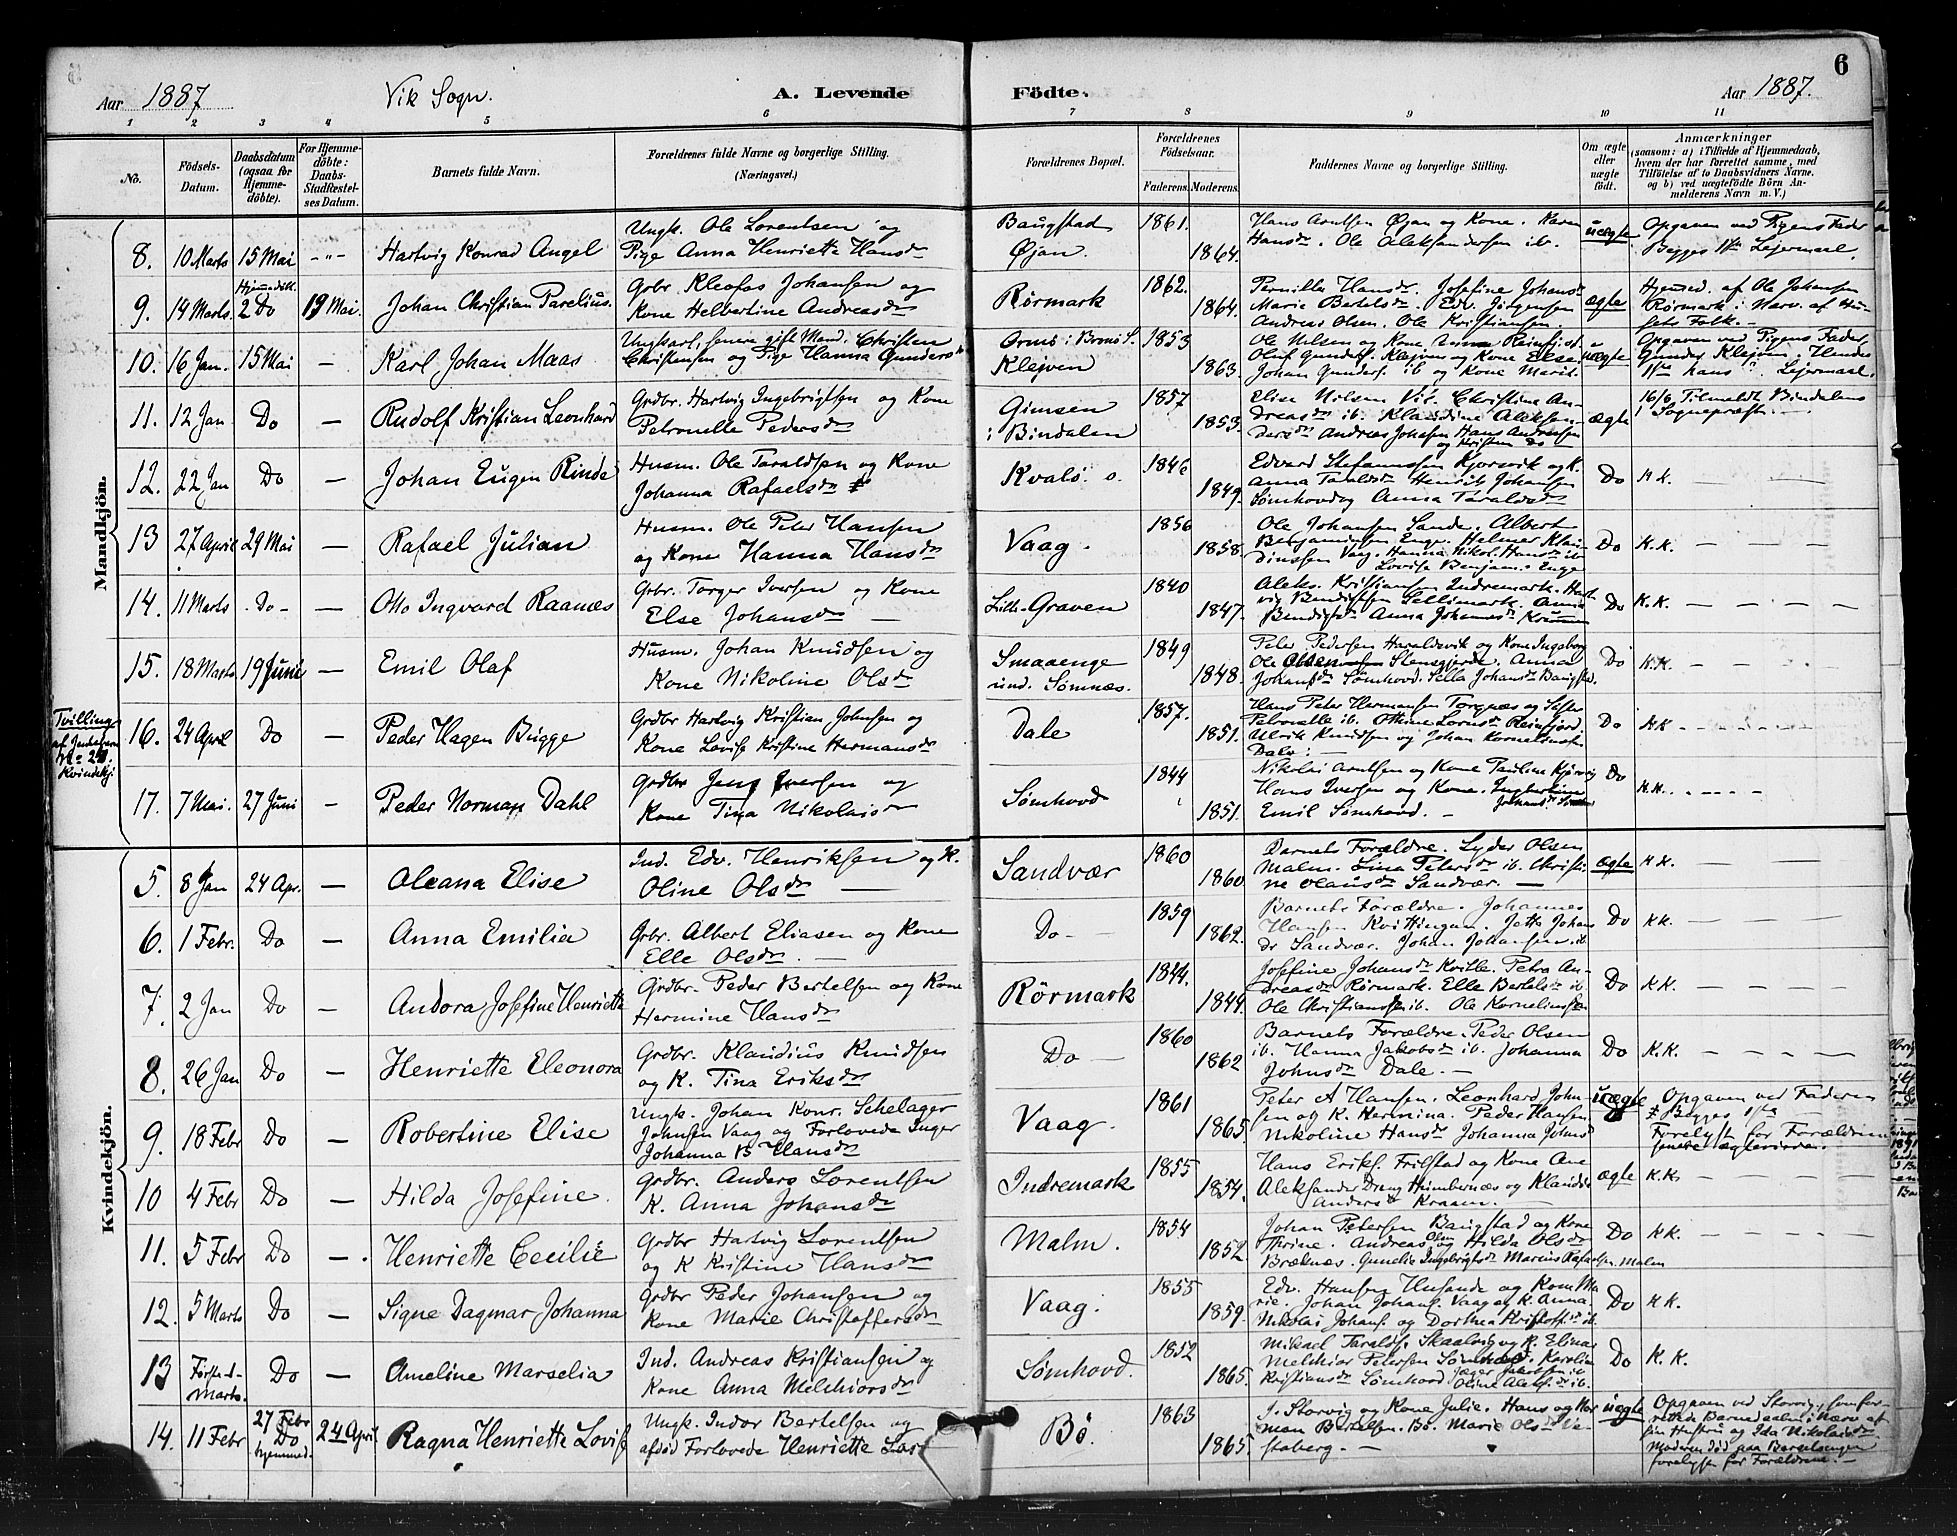 Aar 1887 Vik Sogn. A. Levende Födte. Aar 1887. 6
1 2 3 4 5 6 7 8 9 10 11
No.
Födsels-Datum.
Daabsdatum (ogsaa for Hjemmedöbte).
For Hjemmedöbte: Daabs-Stadfæstelses Datum.
Barnets fulde Navn.
Forældrenes fulde Navne og borgerlige Stilling.
(Næringsvei.)
Forældrenes Bopæl.
Forældrenes Födselsaar.
Faderens. Moderens.
Faddernes Navne og borgerlige Stilling.
Om ægte eller uægte födt.
Anmærkninger
(saasom: a) i Tilfælde af Hjemmedaab, hvem der har forrettet samme, med Tilföielse af to Daabsvidners Navne, og b) ved uægtefödte Börn Anmelderens Navn m. V.)
Mandkjön.
8. 10 Marts 15 Mai -"- Hartvig Konrad Angel
Ungk. Ole Lorentsen og
Pige Anna Henriette Hansdr
Baugstad
Øjan.
1861. 1864.
Hans Arntsen Øjan og Kone. Karen
Hansdr. Ole Aleksandersen ib.
uægte
Opgaven ved Pigens Fader
Begges 1ste Lejermaal.
9. 14 Marts. Hjemmedøbt 2 Do 19 Mai. Johan Christian Parelius.
Grbr. Kleofas Johansen og
Kone Helbertine Andreasdr
Rörmark
1862. 1864.
Pernille Hansdr. Josefine Johansdr
Marie Bertelsdr. Edv. Jörgensen
Andreas Olsen. Ole Kristiansen.
ægte
Hjemmed. af Ole Johansen
Rörmark i Nærv. af Husets Folk. -
10. 16 Jan. 15 Mai - Karl Johan Maas
Ungkarl, senere gift Mand, Christen
Christensen og Pige Hanna Gundersdr
Klejven
1853 1863.
Ole Nilsen og Kone
Oluf Gunders. Klejven og Kone Else.
Johan Gunders. ib og Kone Marit.
uægte
Opgaven ved Pigens Fader
Gunder Klejven. Hendes
1ste hans Lejermaal.
11. 12 Jan Do - Rudolf Kristian Leonhard
Grdbr. Hartvig Ingebrigtsen og Kone
Petronelle Pedersdr
Gimsen
i Bindalen
1857 1853.
Else Nilsen Vik. Christine Andreasdr ib. Klausdine Aleksandersdr Andreas Johnsen Hans Andreasen
ægte
16/6 Tilmeldt Bindalens
Sognepræst. -
12. 22 Jan Do - Johan Eugen Rinde
Husm. Ole Taraldsen og Kone
Johanna Rafaelsdr
Kvalö. s.
1846 1849.
Edvard Stefanussen Kjörsvik og K.
Anna Taraldsdr Henrik Johansen
Sömhovd og Anna Taraldsdr
Do K K. - -
13 27 April 29 Mai - Rafael Julian
Husm. Ole Peter Hansen
og Kone Hanna Hansdr
Vaag.
1856 1858.
Ole Johansen Sande. Albert
Benjaminsen Enge. Helmer Klaudiussen Vaag. Hanna Nikol. Hansdr ib
Lovise Benjam. Enge
Do K.K. - - -
14. 11 Marts Do - - Otto Ingvard Raanæs
Grbr. Torger Iversen og Kone
Else Johansdr -
Lille-Graven
1840 1847.
Aleks. Kristiansen Indremark. Hartvig Bendigtsen Sellimark. Anna
Bendigtsdr Anna Johannesdr
Do K.K. - - -
15. 18 Marts 19 Juni - Emil Olaf
Husm. Johan Knudsen og
Kone Nikoline Olsdr
Smaaenge
und. Sömnæs.
1849 1848.
Peter Pedersen Haraldsvik og Kone Ingeborg
Ole Stensgjerde. Anna
Johansdr Sömhovd. Sella Johansdr Baugstad.
Do K.K. - - -
Tvilling
16. 24 April Do - Peder Hagen Bugge
Grdbr Hartvig Kristian Johnsen og
Kone Lovise Kristine Hermansdr
Dale
1857. 1851.
Hans Peter Hermansen Torgnæs og Søster
Petronelle ib. Othine Lornsdr Reinfjord
Ulrik Knudsen og Johan Korneliussen
Dale. -
Do KK - - - -
Kvindekj.
17. 7 Mai. 27 Juni - Peder Norman Dahl
Grdbr Jens Iversen og
Kone Tina Nikolaisdr
Sömhovd
1844 1851.
Nikolai Arntsen og Kone Paulina Kjörsvig
Hans Iversen og Kone. Ingbertine
Emil Sömhovd. -
Do K.K. - - - -
Kvindekjön.
5. 8 Jan 24 Apr. - Oleana Elise
Ind. Edv. Henriksen og K.
Oline Olsdr -
Sandvær
1860 1860
Barnets Forældre. Lyder Olsen
Malm. Lina Petersdr ib. Christine Olausdr Sandvær. -
ægte K K. - - -
6. 1 Febr. Do - Anna Emilia
Grbr. Albert Eliasen og Kone
Elle Olsdr. -
Do -
1859 1862.
Barnets Forældre. Johannes
Hansen Kvittingen. Jetta Johansdr Sandvær. Johan Johansen. ib.
Do KK. - - -
7. 2 Jan Do - Andora Josefine Henriette
Grdbr. Peder Bertelsen og Kone
Hermine Hansdr
Rörmark
1844. 1844.
Josefine Johansdr Kville. Petra Andreasdr Rörmark. Elle Bertelsdr ib
Ole Christianssen ib. Ole Korneliussen
Do KK. - - -
8. 26 Jan Do - Henriette Eleonora
Grdbr. Klaudius Knudsen
og K. Tina Eriksdr
Do -
1860 1862
Barnets Forældre. Peder Olsen
ib. Hanna Jakobsdr ib. Johanna
Johnsdr Dale. -
Do K.K. - - - -
9. 18 Febr Do - Robertine Elise
Ungk. Johan Konr. Schelager
Johnsen Vaag og Forlovede Inger
Johanna B Hansdr
Vaag.
1861 1865
Peter A Hansen. Leonhard Johnsen og K. Hermina. Peder Hansen.
Nikoline Hansdr Johanna Johnsdr
uægte
Opgaven ved Faderen
Begges 1ste
Forelyst for Forældrene
10 4 Febr Do - Hilda Josefine.
Grdbr. Anders Lorentsen
K. Anna Johansdr
Indremark
1855 1854.
Hans Eriks. Frilstad og Kone Ane
Aleksander Dreng Humbernæs og Klaudida
Andersdr
ægte K.K. - - -
11. 5 Febr Do - . Henriette Cecilie
Grdbr Hartvig Lorentsen
og K Kristine Hansdr
Malm.
1854 1852
Johan Petersen Baugstad og Kone
Thrine. Andreas Olsen og Hilda Olsdr
Bræknæs. Gunelie Ingebrigtsdr Marcius Rafaelsen. Malm
Do KK. - - -
12. 5 Marts Do - Signe Dagmar Johanna
Grdbr Peder Johansen og
Kone Marie Christoffersdr
Vaag.
1855 1859.
Edv. Hansen Husande og Kone Marie. Johan Johans. Vaag og K. Anna.
Nikolai Johans. og Dorthea Kristoff.dr ib.
Do KK.
13 Marts. Do - Ameline Marselia
Ind. Andreas Kristiansen og
Kone Anna Melchiorsdr
Sömhovd.
1852 1865.
Mikael Taralds. Skaalvig og K. Elina
Melchior Petersen Sömhovd. Karolina
Kristiansdr Sömhovd
Oline Aleks.dr ib.
Do K.K.
14. 11 Febr 27 Febr Do hjemmed. 24 April Ragna Henriette Lovise
Ungk. Indar Bertelsen og
afdöd Forlovede Henriette Lars
Bö.
1863 1865.
J. Storvig og Kone Julie. Hans og Norman Bertelsen. Bö. Marie Olsdr Vestaberg. -
uægte
Opgaven ved Storvig, som forrettede Barnedaaben i Nærv. af
sin Hustru og Ida Nikolaisdr
Moderen död paa Barselsengen
forelyst for Forældrene. -